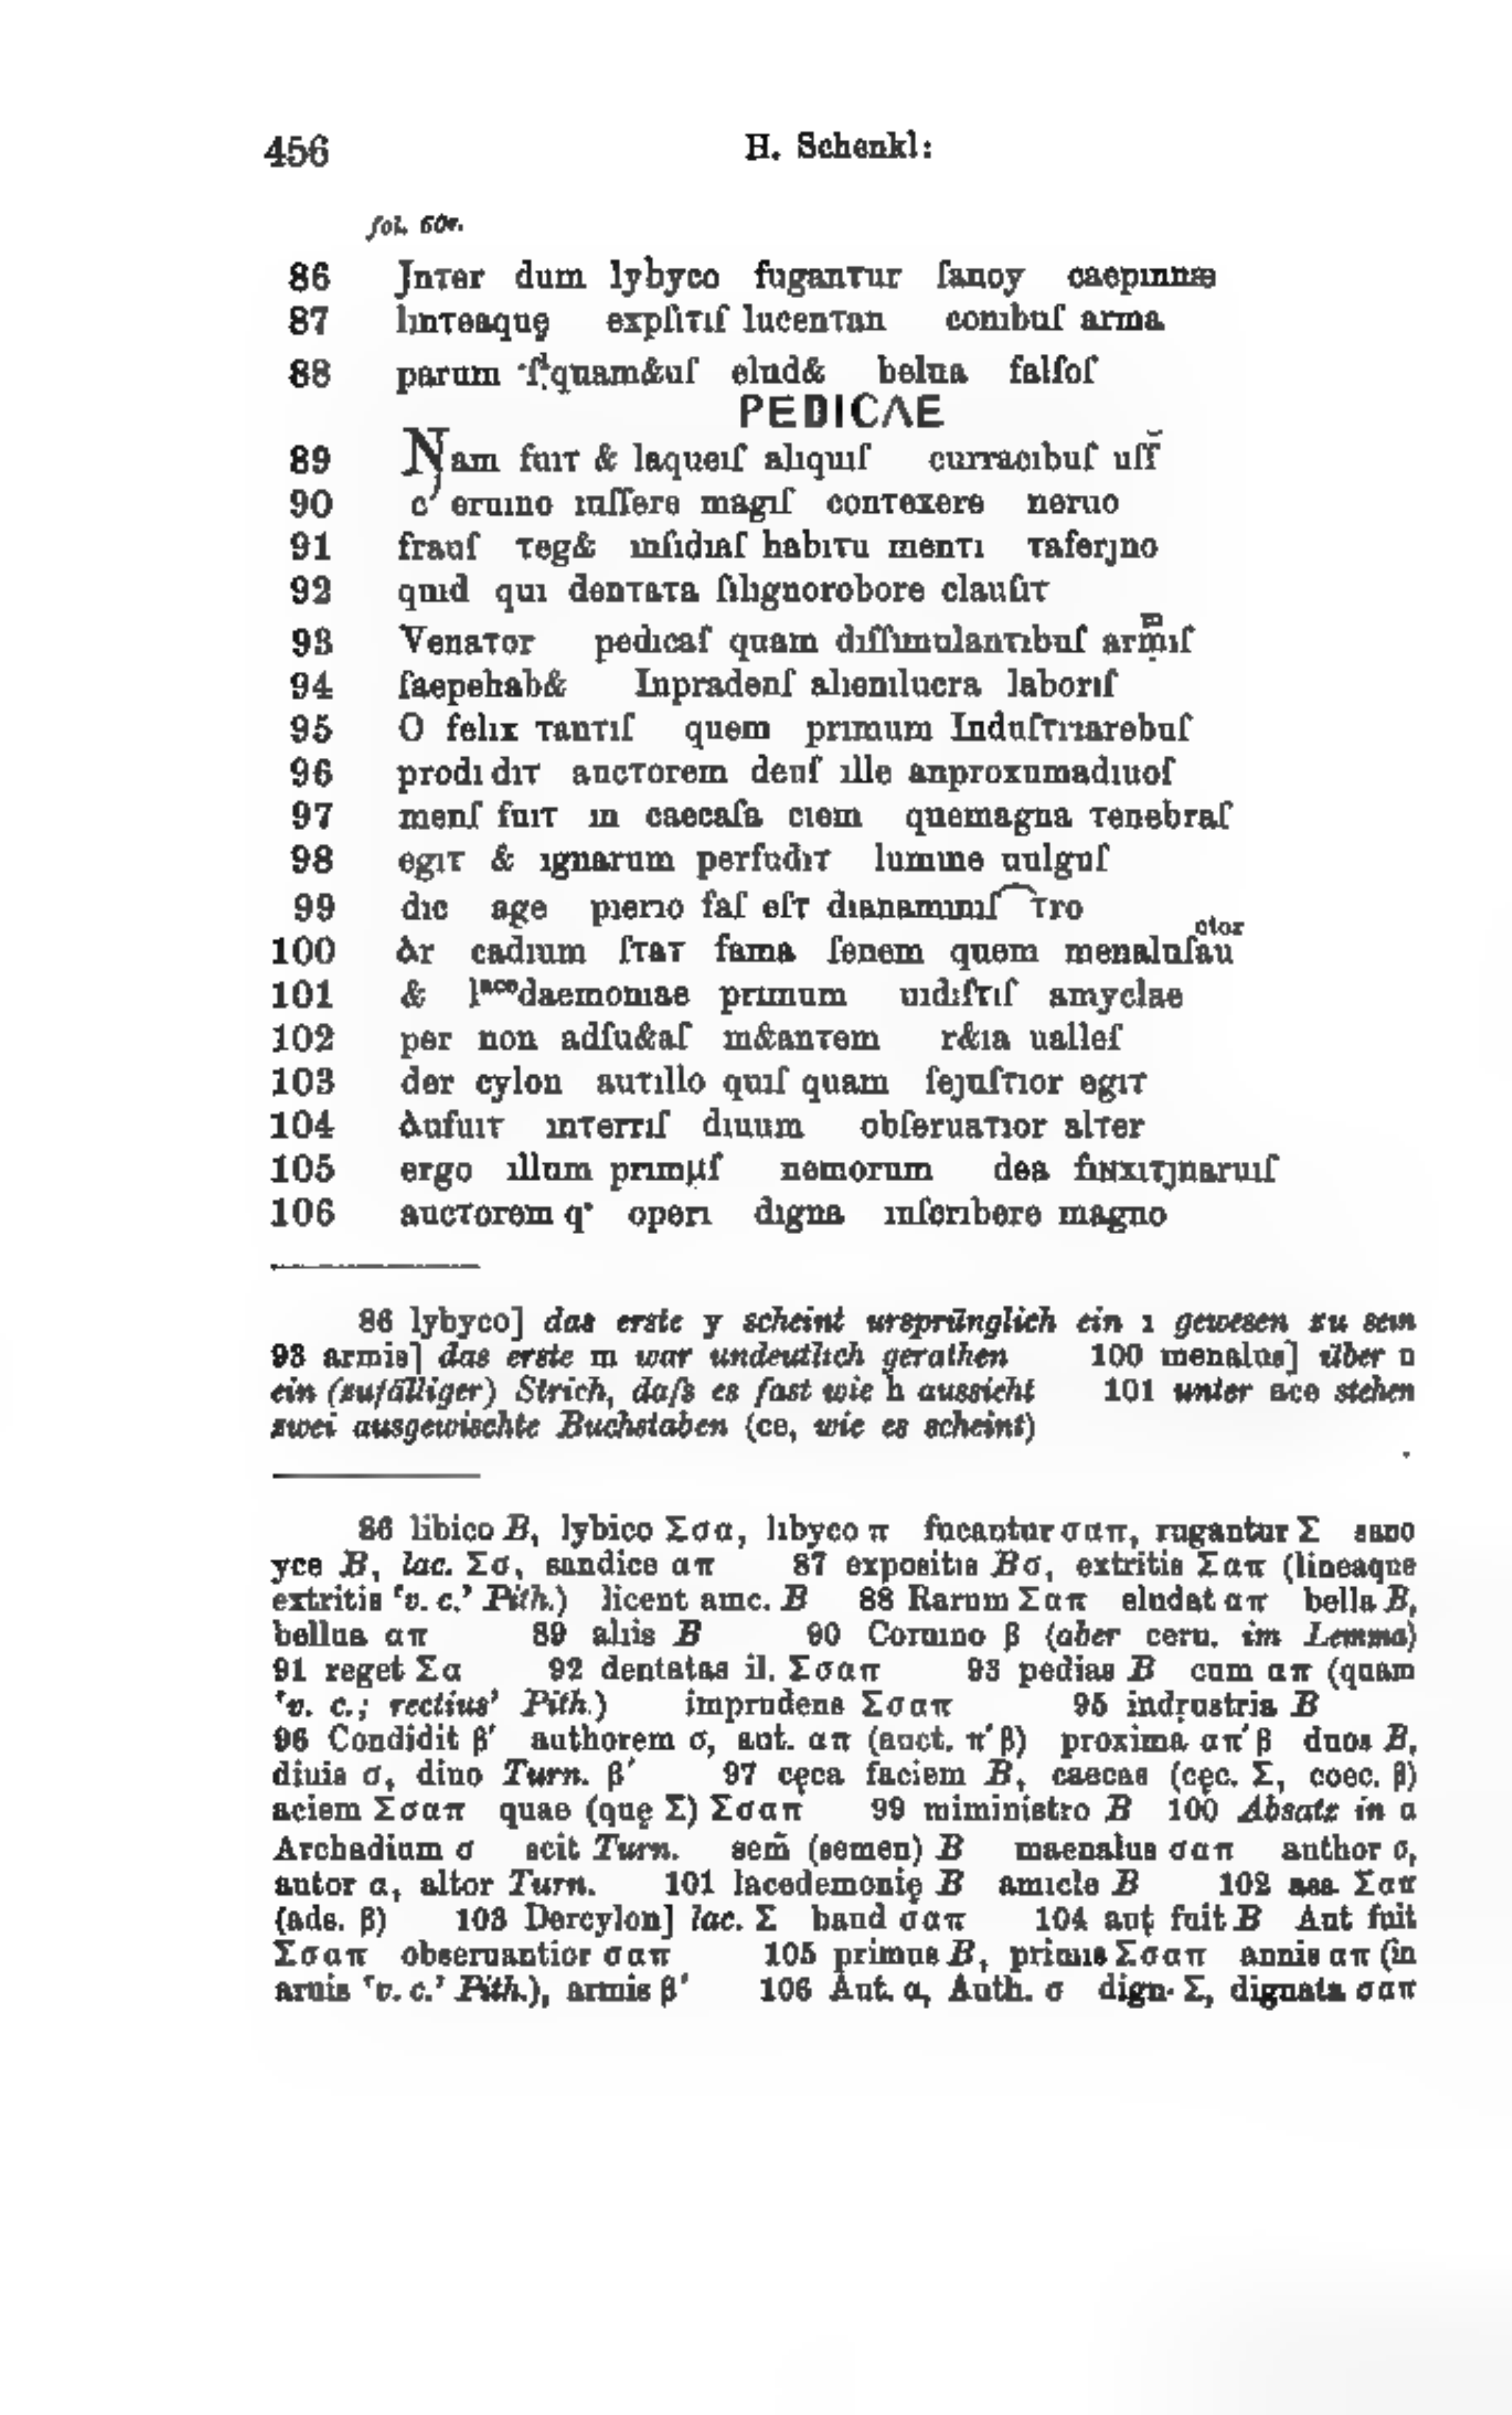 456 H. Schenkl:
fol. 60r.
86 Jnter dum lybyco fugantur ſanoy caepınnæ
87 lınteaquę expſıtıſ lucentan conıbuſ arma
88 parum ſquam&uſ elud& belua falſoſ
PEDICΛE
89 Nam fuıt & laqueıſ alıquıſ curracıbuſ uſſ
90 c eruıno ıuſſere magıſ contexere neruo
91 frauſ teg& ınſıdıaſ habıtu mentı taferȷno
92 quıd quı dentata ſılıgnorobore clauſıt
93 Venator pedıcaſ quam dıſſımulantıbuſ armıſ
94 ſaepehab& Inpradenſ alıenılucra laborıſ
95 O felıx tantıſ quem prımum Induſtrıarebuſ
96 prodı dıt auctorem deuſ ılle anproxumadıuoſ
97 menſ fuıt ın caecaſa cıem quemagna tenebraſ
98 egıt & ıgnarum perfudıt lumıne uulguſ
99 dıc age pıerıo faſ eſt dıanamınıſ tro
100 Ar cadıum ſtat fama ſenem quem menaluſauctor
101 & lacedaemonıae prımum uıdıſtıſ amyclae
102 per non adſu&aſ m&antem r&ıa ualleſ
103 der cylon autıllo quıſ quam ſeȷuſtıor egıt
104 Aufuıt ınterrıſ dıuum obſeruatıor alter
105 ergo ıllum prımuſ nemorum dea fınxıtȷnaruıſ
106 auctorem q· operı dıgna ınſcrıbere magno
86 lybyco] das erste y scheint ursprünglich ein ı gewesen zu sein
93 armis] das erste m war undeutlich gerathen 100 menalus] über n
ein (zufälliger) Strich, daſs es fast wie h aussieht 101 unter ace stehen
zwei ausgewischte Buchstaben (ce, wie es scheint)
86 libico B, lybico Σσα, lıbyco π fucantur σαπ, rugantur Σ sano
yce B, lac. Σσ, sandice απ 87 expositis Bσ, extritis Σαπ (lineaque
extritis ‘v. c.’ Pith.) licent amc. B 88 Rarum Σαπ eludat απ bella B,
bellua απ 89 alıis B 90 Coruıno β (aber ceru. im Lemma)
91 reget Σα 92 dentatas il. Σσαπ 93 pedias B cum απ (quam
‘v. c.; rectius’ Pith.) imprudens Σσαπ 95 indrustria B
96 Condidit β′ authorem σ, aut. απ (auct. π′β) proxima απ′β duos B,
diuis σ, diuo Turn. β′ 97 cęca faciem B, caecas (cęc. Σ, coec. β)
aciem Σσαπ quae (quę Σ) Σσαπ 99 miministro B 100 Absatz in α
Archadium σ scit Turn. sem̄ (semen) B maenalus σαπ author σ,
autor α, altor Turn. 101 lacedemonię B amıcle B 102 ass. Σαπ
(ads. β) 103 Dercylon] lac. Σ haud σαπ 104 aut fuit B Aut fuit
Σσαπ obseruantior σαπ 105 primus B, primis Σσαπ annis απ (in
aruis ‘v. c.’ Pith.), armis β′ 106 Aut. α, Auth. σ dign· Σ, dignata σαπ